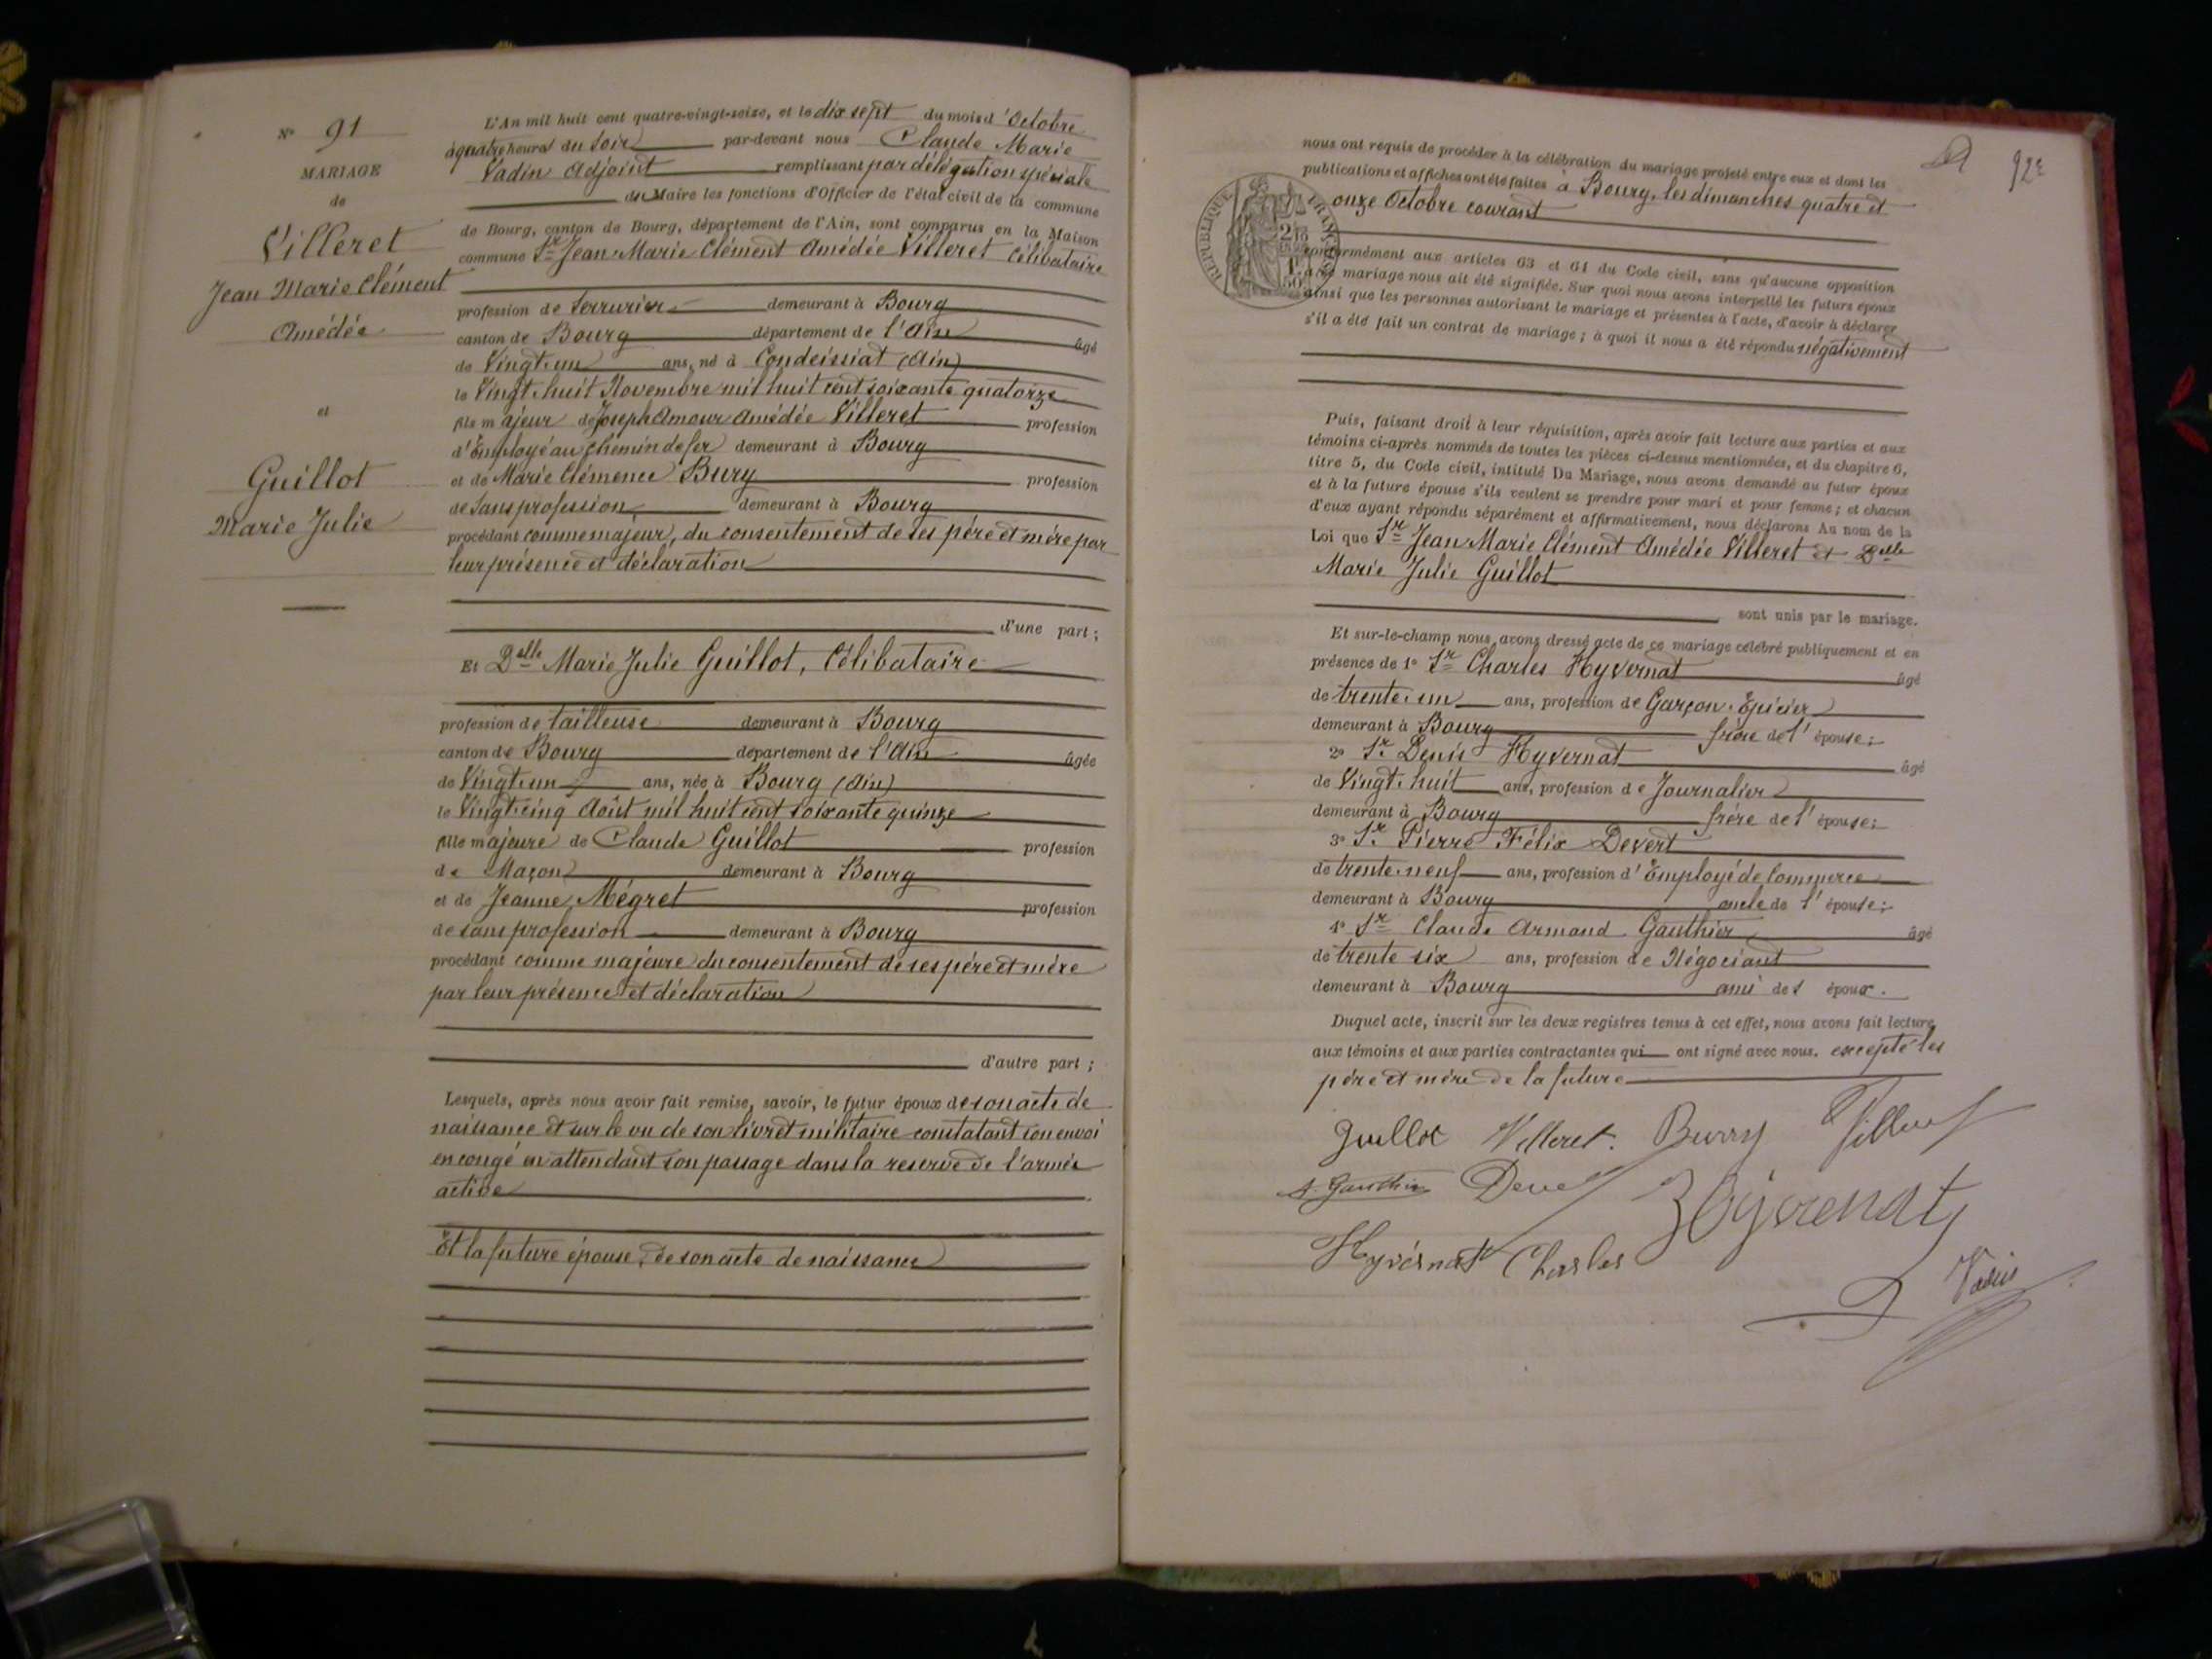 N° 91
MARIAGE
de
Villeret
Jean Marie Clément
Amédée
et
Guillot
Marie Julie
L'An mil huit cent quatre-vingt-seize, et le dix sept du mois d'Octobre
à quatre heures du soir par-devant nous Claude Marie
Vadin Adjoint remplissant par délégation spéciale
du Maire les fonctions d'Officier de l'état civil de la commune
de Bourg, canton de Bourg, département de l'Ain, sont comparus en la Maison
commune Sr Jean Marie Clément Amédée Villeret Célibataire
profession de Serrurier demeurant à Bourg
canton de Bourg département de l'Ain âgé
de Vingt-un ans, né à Condeissiat (Ain)
le Vingt-huit Novembre mil huit cent soixante quatorze
fils majeur de Joseph Amour Amédée Villeret profession
d'Employé au chemin de fer demeurant à Bourg
et de Marie Clémence Bury profession
de Sans profession demeurant à Bourg
procédant comme majeur, du consentement de ses père et mère par
leur présence et déclaration
d'une part ;
Et Delle Marie Julie Guillot, Célibataire
profession de tailleuse demeurant à Bourg
canton de Bourg département de l'Ain âgée
de Vingt-un ans, née à Bourg (Ain)
le Vingt-cinq Août mil huit cent soixante quinze
fille majeure de Claude Guillot profession
de Maçon demeurant à Bourg
et de Jeanne Mégret profession
de sans profession demeurant à Bourg
procédant comme majeure du consentement de ses père et mère
par leur présence et déclaration
d'autre part ;
Lesquels, après nous avoir fait remise, savoir, le futur époux de son acte de
naissance et sur le vu de son livret militaire constatant son envoi
en congé en attendant son passage dans la reserve de l'armée
active
Et la future épouse, de son acte de naissance
92e
nous ont requis de procéder à la célébration du mariage projeté entre eux et dont les
publications et affiches ont été faites à Bourg, les dimanches quatre et
onze Octobre courant
RÉPUBLIQUE FRANÇAISE
conformément aux articles 63 et 64 du Code civil, sans qu'aucune opposition
audit mariage nous ait été signifiée. Sur quoi nous avons interpellé les futurs époux
ainsi que les personnes autorisant le mariage et présentes à l'acte, d'avoir à déclarer
s'il a été fait un contrat de mariage ; à quoi il nous a été répondu négativement
Puis, faisant droit à leur réquisition, après avoir fait lecture aux parties et aux
témoins ci-après nommés de toutes les pièces ci-dessus mentionnées, et du chapitre 6,
titre 5, du Code civil, intitulé Du Mariage, nous avons demandé au futur époux
et à la future épouse s'ils veulent se prendre pour mari et pour femme ; et chacun
d'eux ayant répondu séparément et affirmativement, nous déclarons Au nom de la
Loi que Sr Jean Marie Clément Amédée Villeret et Delle
Marie Julie Guillot
sont unis par le mariage.
Et sur-le-champ nous avons dressé acte de ce mariage célébré publiquement et en
présence de 1° Sr Charles Hyvernat âgé
de trente-un ans, profession de Garçon-Epicier
demeurant à Bourg frère de l'épouse ;
2° Sr Denis Hyvernat âgé
de Vingt-huit ans, profession de Journalier
demeurant à Bourg frère de l'épouse ;
3° Sr Pierre Félix Devert
de trente-neuf ans, profession d'Employé de Commerce
demeurant à Bourg oncle de l'épouse ;
4° Sr Claude Armand Gauthier âgé
de trente six ans, profession de Négociant
demeurant à Bourg ami des époux.
Duquel acte, inscrit sur les deux registres tenus à cet effet, nous avons fait lecture
aux témoins et aux parties contractantes qui ont signé avec nous. excepté les
père et mère de la future
Guillot Villeret. Burry Villeret
A. Gauthier Devert Hyvernat
Hyvernat Charles
Vadin